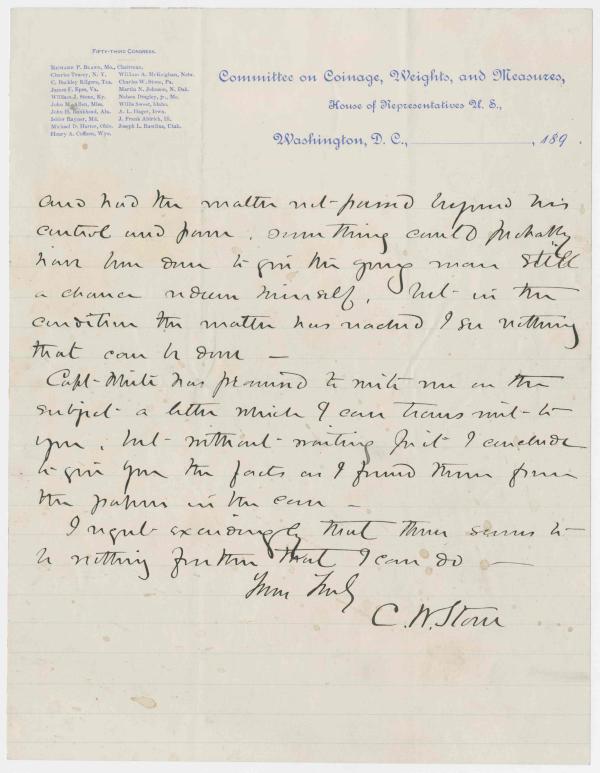 FIFTY-THIRD CONGRESS.
RICHARD P. BLAND, Mo., Chairman.
Charles Tracey, N. Y.
C. Buckley Kilgore, Tex.
James F. Epes, Va.
William J. Stone, Ky.
John M. Allen, Miss.
John H. Bankhead, Ala.
Isidor Rayner, Md.
Michael D. Harter, Ohio.
Henry A. Coffeen, Wyo.
William A. McKeighan, Nebr.
Charles W. Stone, Pa.
Martin N. Johnson, N. Dak.
Nelson Dingley, jr., Me.
Willis Sweet, Idaho.
A. L. Hager, Iowa.
J. Frank Aldrich, Ill.
Joseph L. Rawlins, Utah.
Committee on Coinage, Weights, and Measures,
House of Representatives U. S.,
Washington, D. C., , 189 .
and had the matter not passed beyond his
control and power, something could probably
have been done to give the young man still
a chance redeem himself, but in the
condition the matter has reached I see nothing
that can be done —
Capt White has promised to write me on the
subject a letter which I can transmit to
you, but without waiting for it I conclude
to give you the facts as I found them from
the papers in the case —
I regret exceedingly that there seems to
be nothing further that I can do —
Yours Truly
C. W. Stone